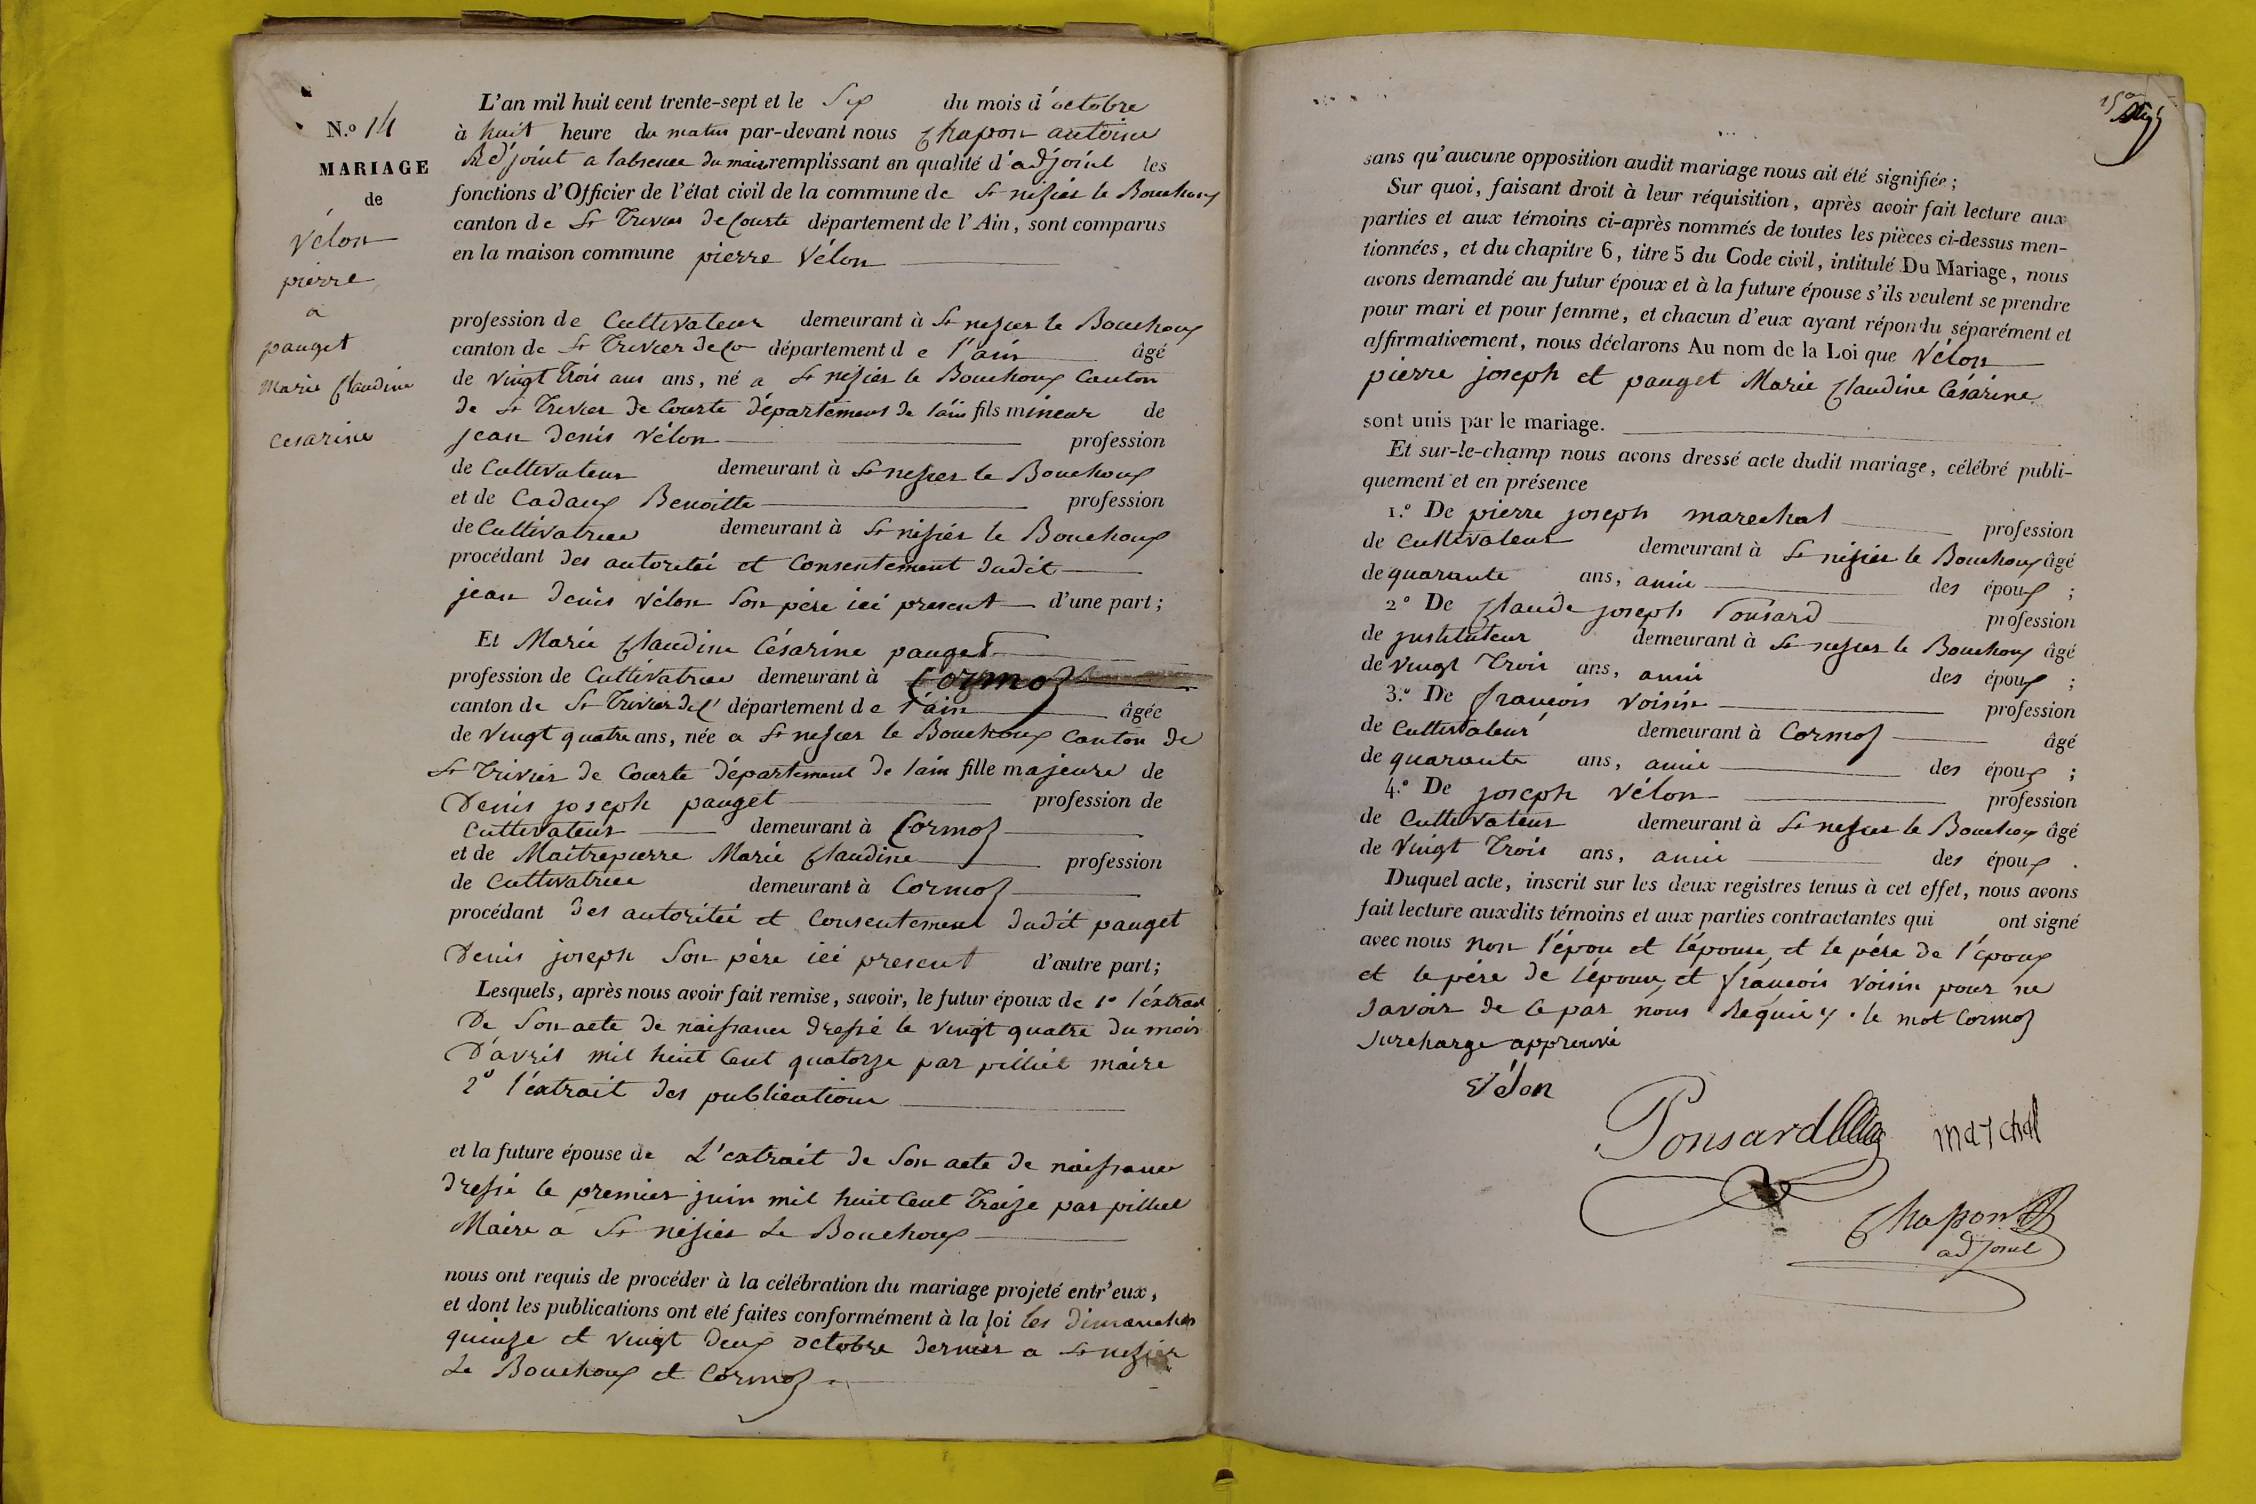 N.o 14
MARIAGE
de
vélon
pierre
a
pauget
Marie Claudine
cesarine
L'an mil huit cent trente-sept et le Six du mois d'octobre
à huit heure du matin par-devant nous Chapon antoine
Adjoint a labsence du maire remplissant en qualité d'adjoint les
fonctions d'Officier de l'état civil de la commune de St nizier le Bouchoux
canton de St Trivier de Courte département de l'Ain, sont comparus
en la maison commune pierre vélon
profession de Cultivateur demeurant à St nizier le Bouchoux
canton de St Trivier de Co département de l'ain âgé
de vingt trois ans ans, né a St nizier le Bouchoux Canton
de St Trivier de Courte département de lain fils mineur de
jean denis vélon profession
de Cultivateur demeurant à St nizier le Bouchoux
et de Cadaux Benoitte profession
de Cultivatrice demeurant à St nizier le Bouchoux
procédant des autorité et Consentement dudit
jean denis vélon Son père ici present d'une part;
Et Marie Claudine Césarine pauget
profession de Cultivatrice demeurant à Cormoz
canton de St Trivier de C département de l'ain âgée
de vingt quatre ans, née a St nizier le Bouchoux Canton de
St Trivier de Courte département de lain fille majeure de
Denis joseph pauget profession de
Cultivateur demeurant à Cormoz
et de Maitrepierre Marie Claudine profession
de Cultivatrice demeurant à Cormoz
procédant des autorité et Consentement dudit pauget
Denis joseph Son père ici present d'autre part;
Lesquels, après nous avoir fait remise, savoir, le futur époux de 1o l'éxtrait
De Son acte de naissance dressé le vingt quatre du mois
D'avril mil huit Cent quatorze par pilliet maire
2o l'éxtrait des publications
et la future épouse de L'extrait de Son acte de naissance
dressé le premier juin mil huit Cent Treize par pilliet
Maire a St nizier Le Bouchoux
nous ont requis de procéder à la célébration du mariage projeté entr'eux,
et dont les publications ont été faites conformément à la loi les dimanches
quinze et vingt deux octobre dernier a St nizier
Le Bouchoux et Cormoz
sans qu'aucune opposition audit mariage nous ait été signifiée;
Sur quoi, faisant droit à leur réquisition, après avoir fait lecture aux
parties et aux témoins ci-après nommés de toutes les pièces ci-dessus men-
tionnées, et du chapitre 6, titre 5 du Code civil, intitulé Du Mariage, nous
avons demandé au futur époux et à la future épouse s'ils veulent se prendre
pour mari et pour femme, et chacun d'eux ayant répondu séparément et
affirmativement, nous déclarons Au nom de la Loi que vélon
pierre joseph et pauget Marie Claudine Césarine
sont unis par le mariage.
Et sur-le-champ nous avons dressé acte dudit mariage, célébré publi-
quement et en présence
1.o De pierre joseph marechal profession
de Cultivateur demeurant à St nizier le Bouchoux âgé
de quarante ans, amie des époux ;
2o De Claude joseph Ponsard profession
de justituteur demeurant à St nizier le Bouchoux âgé
de vingt Trois ans, amie des époux ;
3.o De françois voisin profession
de Cultivateur demeurant à Cormoz âgé
de quarante ans, amie des époux ;
4.o De joseph vélon profession
de Cultivateur demeurant à St nizier le Bouchoux âgé
de vingt Trois ans, amie des époux .
Duquel acte, inscrit sur les deux registres tenus à cet effet, nous avons
fait lecture auxdits témoins et aux parties contractantes qui ont signé
avec nous non l'épou et l'épouse, et le pére de l'époux
et le pére de l'épouse, et françois voisin pour ne
Savoir de ce par nous Réquis . le mot Cormoz
Surcharge approuvé
Vélon
Ponsard
marchal
Chapon
adjoint